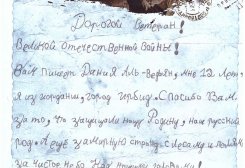 Дорогой Ветеран!
Великой Отечественной Войны!
Вам пишет Дания Аль-Верьян, мне 12 лет
я из Иордании, город Ирбид. Спасибо Вам
за то, что защищали нашу Родину, наш русский
род. А ещё за мирную страну, с лесами и полями
за чистое небо над